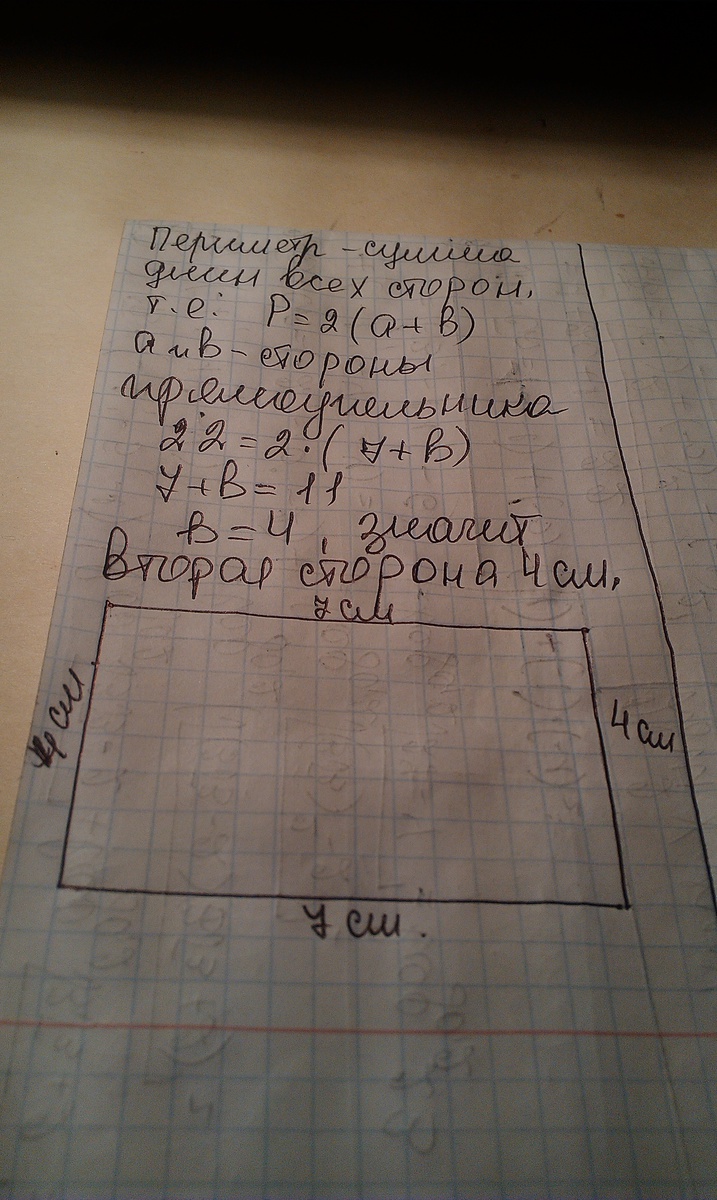 Периметр - сумма
длин всех сторон,
т.е: P = 2(a + b)
a и b - стороны
прямоугольника
22 = 2·(7 + b)
7 + b = 11
b = 4, значит
вторая сторона 4 см.
7 см
4 см
4 см
7 см.